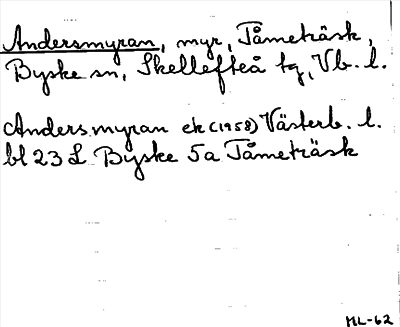 Andersmyran, myr, Tåmeträsk,
Byske sn, Skellefteå tg, Vb. l.
Anders myran ek (1958) Västerb. l.
bl 23 L Byske 5a Tåmeträsk
ML-62